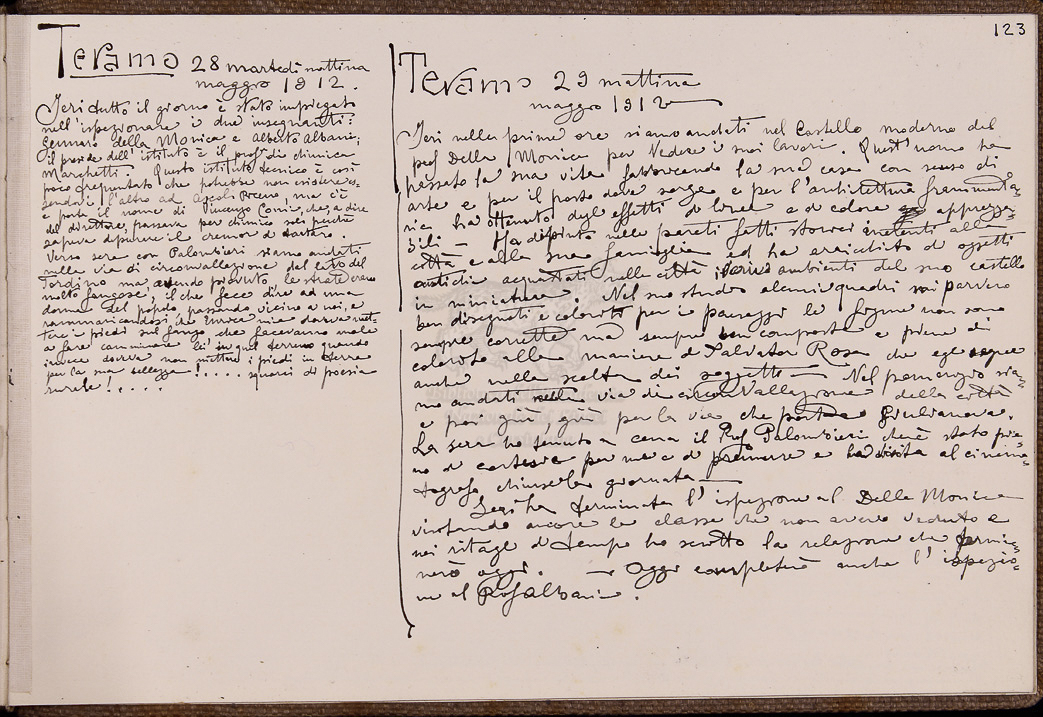 123
Teramo 28 martedì mattina
maggio 1912.
Ieri tutto il giorno è stato impiegato
nell'ispezionare i due insegnanti:
Gennaro della Monica e Alberto Albani;
il preside dell'istituto è il prof. di chimica
Marchetti. Questo istituto tecnico è così
poco frequentato che potrebbe non esistere es-
sendovi l'altro ad Ascoli Piceno, ma c'è
e porta il nome di Vincenzo Comi, che, a dire
del direttore, passava per chimico solo perché
sapeva depurare il cremor di tartaro.
Verso sera con Palombieri siamo andati
nella via di circonvallazione dal lato del
Tordino ma avendo piovuto le strade erano
molto fangose, il che fece dire ad una
donna del popolo, passando vicino a noi, e
rammaricandosi che mia doveva met-
tere i piedi sul fango che facevamo male
a fare camminare lì in quel terreno quando
invece doveva non mettere i piedi in terra
per la sua bellezza!.... squarci di poesia
rurale!....
Teramo 29 mattina
maggio 1912
Ieri nelle prime ore siamo andati nel Castello moderno del
prof Della Monica per vedere i suoi lavori. Quest'uomo ha
passato la sua vita fabbricando la sua casa con senso di
arte e per il posto dove sorge e per l'architettura frammenta-
ria ha ottenuto degli effetti di linea e di colore apprezza-
bili — Ha dipinto nelle pareti fatti storici inerenti alla
città e alla sua famiglia ed ha arricchito di oggetti
antichi acquistati nella città i vari ambienti del suo castello
in miniatura. Nel suo studio alcuni quadri mi parvero
ben disegnati e coloriti per i paesaggi le figure non sono
sempre corrette ma sempre ben composte e piene di
colorito alla maniera di Salvator Rosa che egli segue
anche nella scelta dei soggetti — Nel pomeriggio sia-
mo andati nella via di circonvallazione della città
e poi giù, giù per la via che porta a Giulianova.
La sera ho tenuto a cena il Prof Palombieri che è stato pie-
no di cortesie per me e di premure e la visita al cinema-
tografo chiuse la giornata —
Ieri ho terminata l'ispezione al Della Monica
visitando ancora le classi che non avevo veduto e
nei ritagli di tempo ho scritto la relazione che termi-
nerò oggi. — Oggi completerò anche l'ispezio-
ne al Prof Albani.